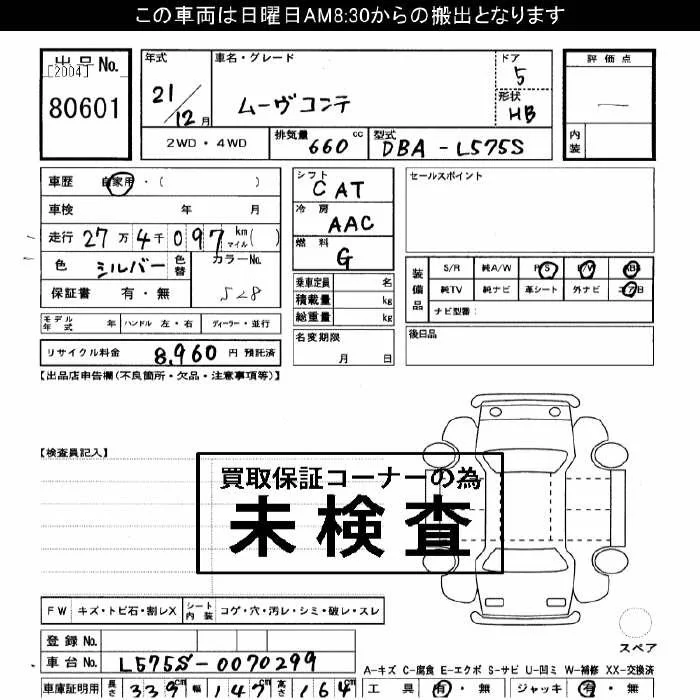 この車両は日曜日AM8:30からの搬出となります
出品No.
[2004]
80601
年式 21/12月
車名・グレード
ムーヴコンテ
ドア 5
形状 HB
評価点
―
内装
2WD・4WD
排気量 660 cc
型式 DBA-L575S
車歴 自家用・( )
車検 年 月
走行 27万4千097 km マイル( )
色 シルバー 色替 カラーNo. S28
保証書 有・無
シフト CAT
冷房 AAC
燃料 G
乗車定員 名
積載量 kg
総重量 kg
セールスポイント
装備品 S/R 純A/W P/S P/W ABS
純TV 純ナビ 革シート 外ナビ エアB
ナビ型番:
モデル年式 年 ハンドル 左・右 ディーラー・並行
リサイクル料金 8,960 円 預託済
名変期限 月 日
後日品
【出品店申告欄(不良箇所・欠品・注意事項等)】
【検査員記入】
買取保証コーナーの為
未検査
FW キズ・トビ石・割レX シート内装 コゲ・穴・汚レ・シミ・破レ・スレ
スペア
登録No.
車台No. L575S-0070299
A-キズ C-腐食 E-エクボ S-サビ U-凹ミ W-補修 XX-交換済
車庫証明用 長さ 339cm 幅 147cm 高さ 164cm
工具 有・無 ジャッキ 有・無